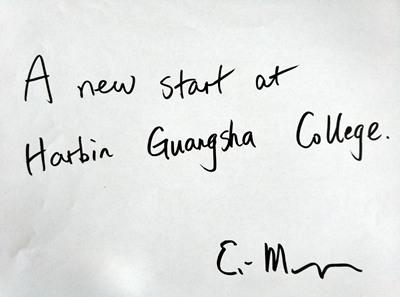 A new start at
Harbin Guangsha College.